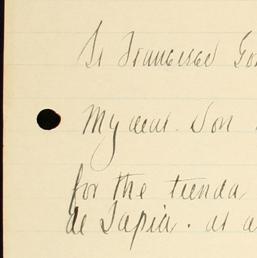 Sr Francisco Gon
My dear Son
for the tienda
de Tapia. at a